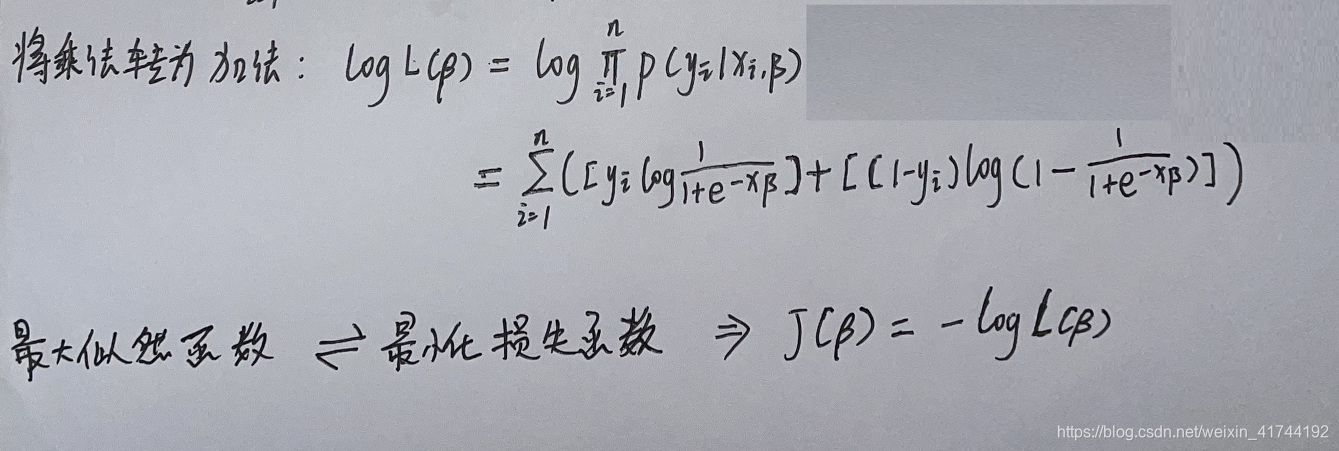 将乘法转为加法: log L(β) = log ∏_{i=1}^{n} p(y_i|x_i, β)
= ∑_{i=1}^{n} ([y_i log 1/(1+e^{-xβ})] + [(1-y_i) log(1 - 1/(1+e^{-xβ}))])
最大似然函数 ⇌ 最小化损失函数 ⇒ J(β) = -log L(β)
https://blog.csdn.net/weixin_41744192